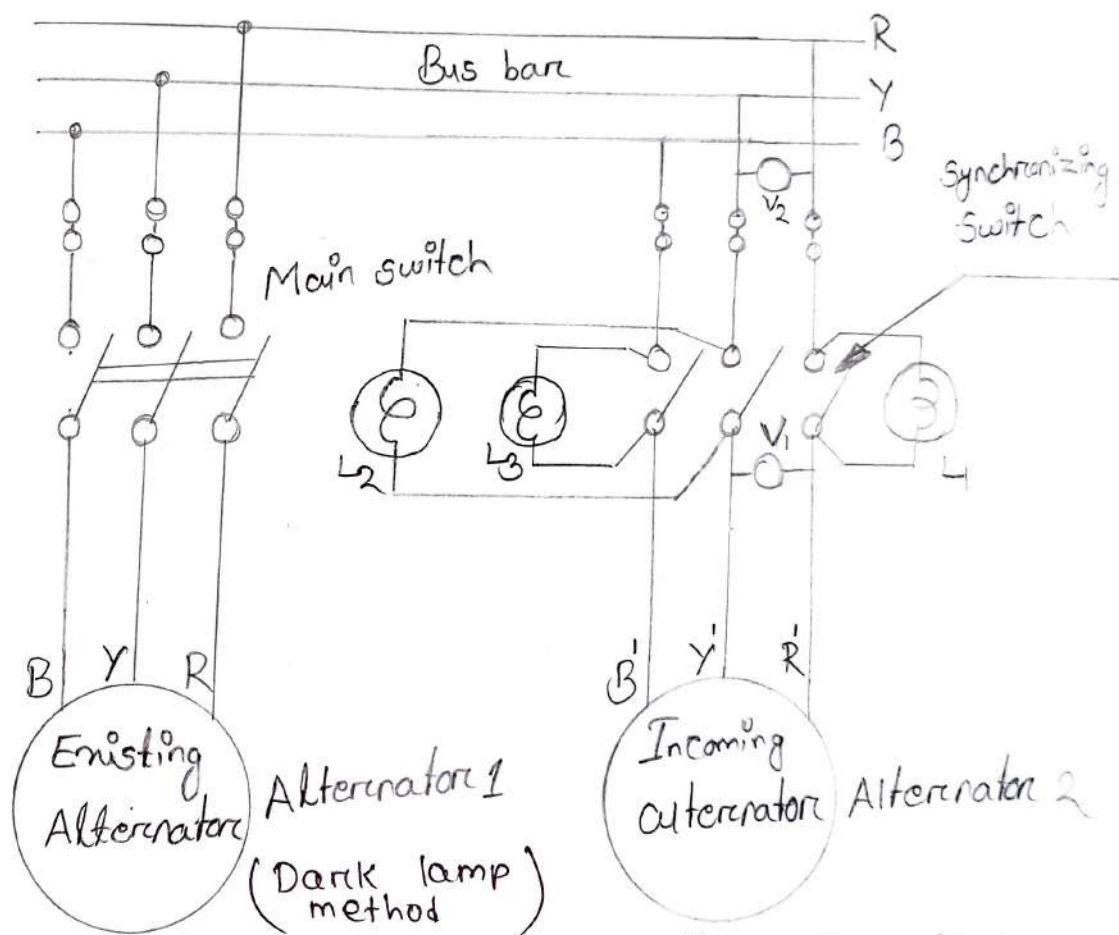 R
Bus bare
Y
B
V2
Synchronizing
Switch
Main switch
L2
L3
V1
L1
B Y R
B' Y' R'
Enisting
Alterenatore
Alterenatore 1
(Darek lamp
method)
Incoming
alterenatore
Alterenatore 2